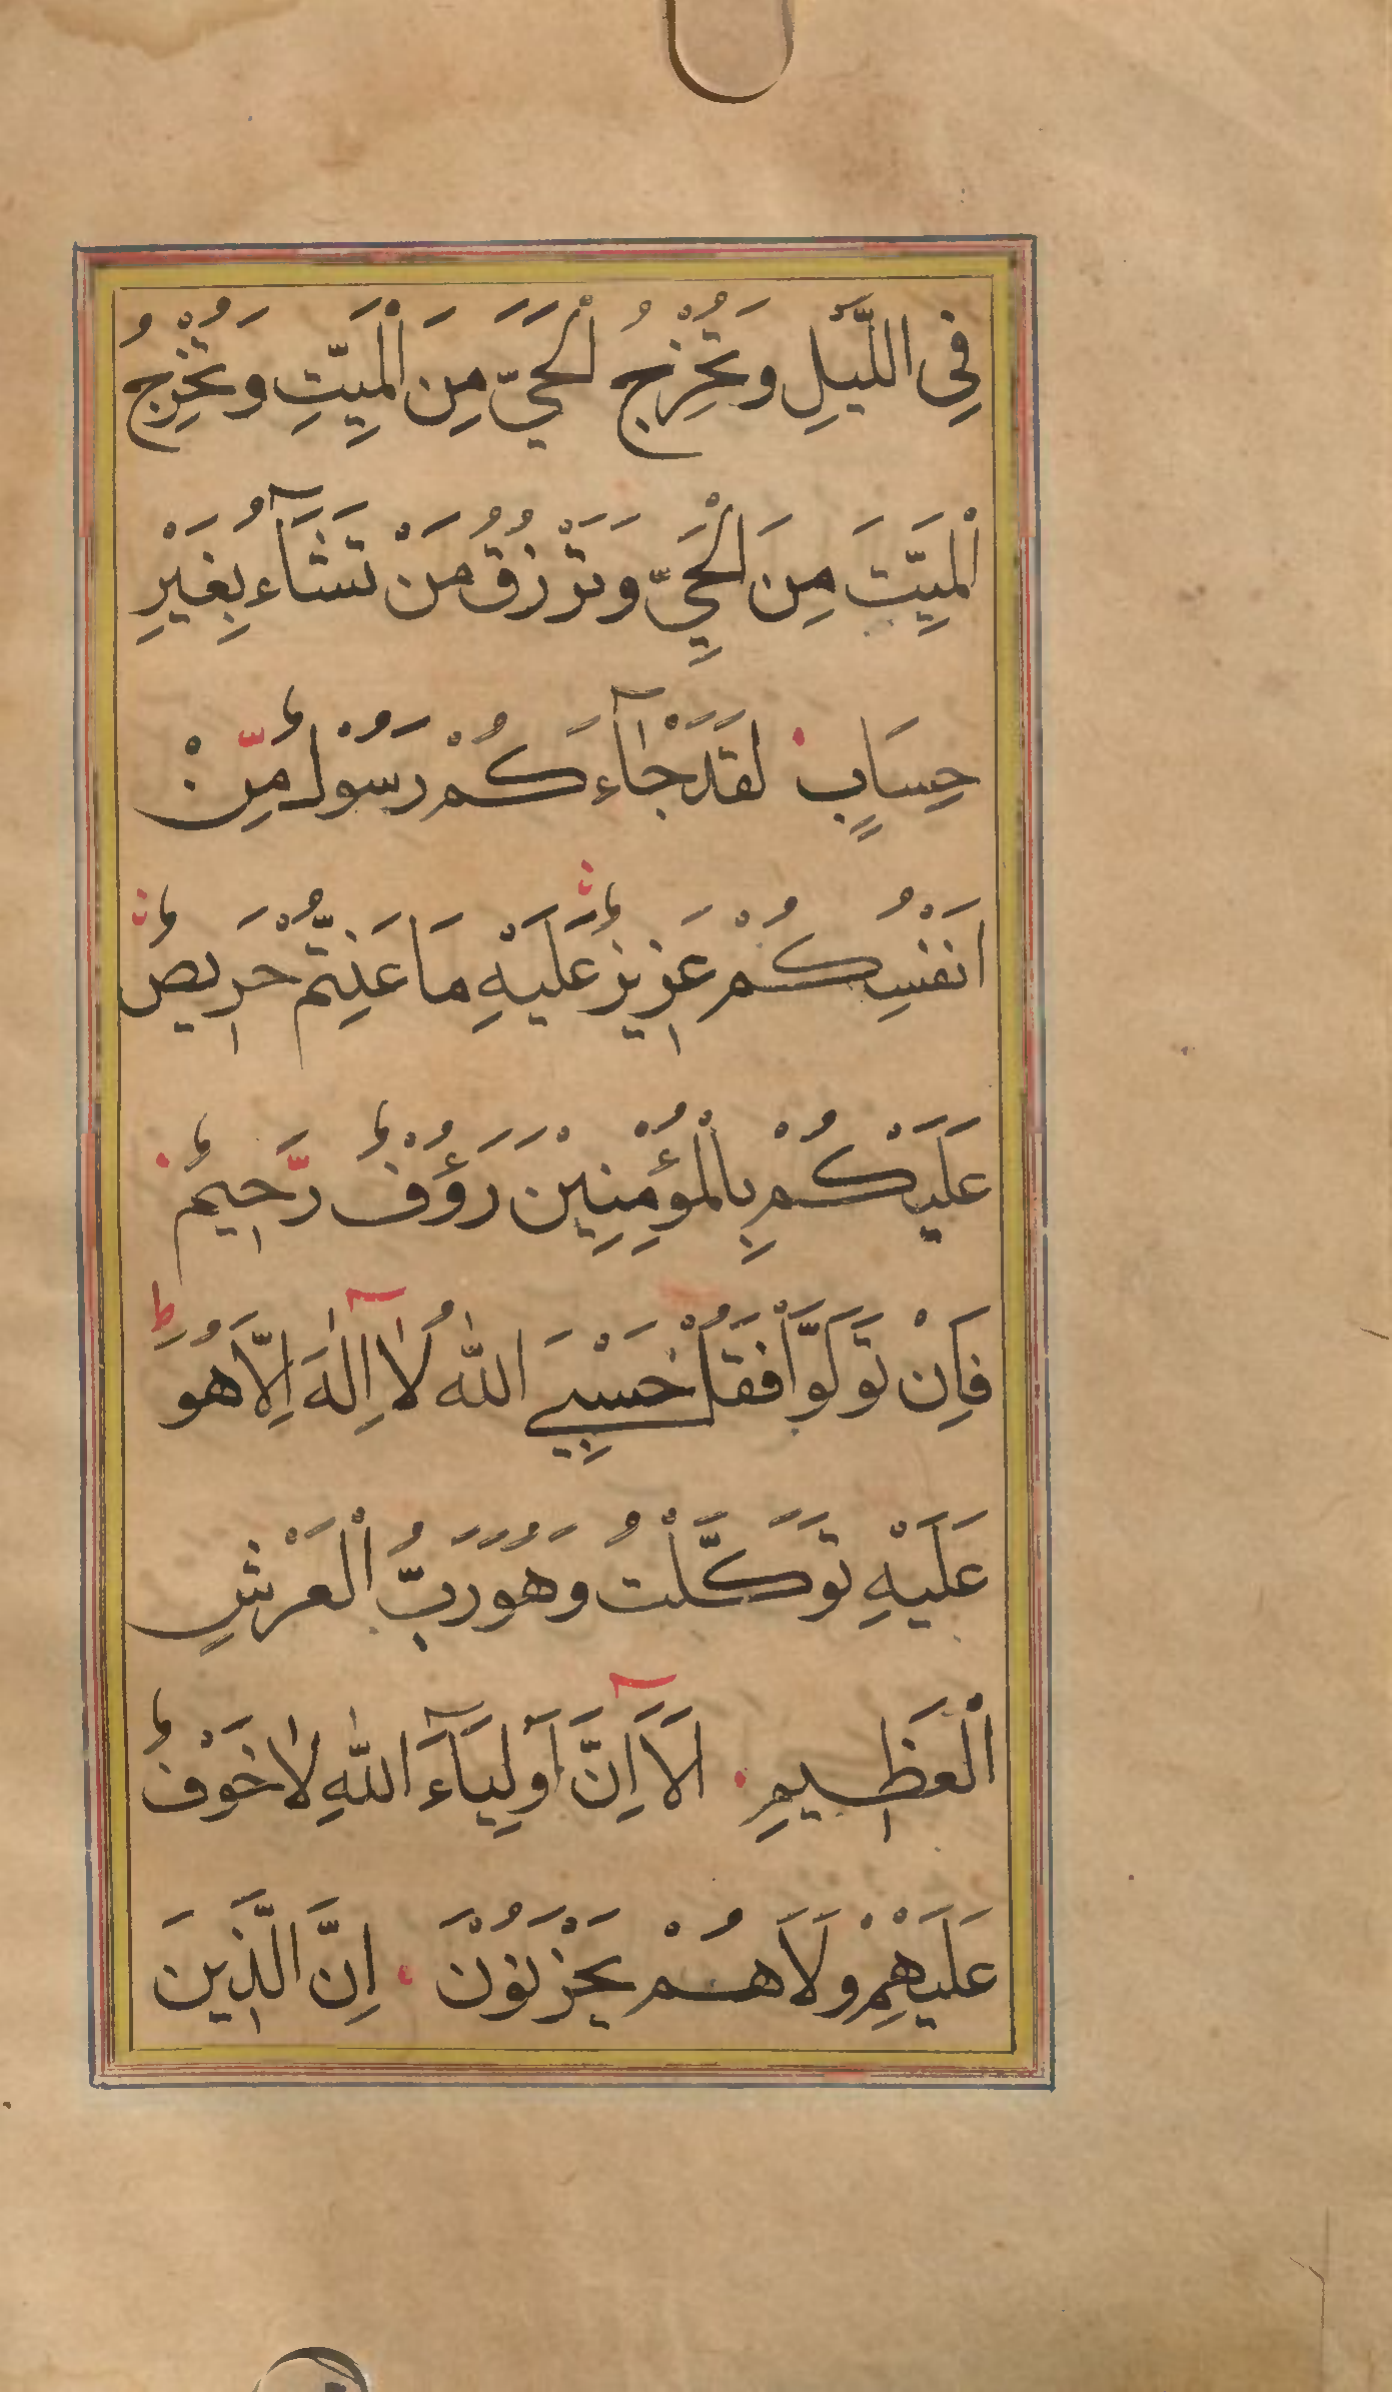 فِى اللَّيْلِ وَتُخْرِجُ الْحَىَّ مِنَ الْمَيِّتِ وَتُخْرِجُ
الْمَيِّتَ مِنَ الْحَيِّ وَتَرْزُقُ مَنْ تَشَآءُ بِغَيْرِ
حِسَابٍ لَقَدْ جَآءَكُمْ رَسُوْلٌ مِّنْ
اَنْفُسِكُمْ عَزِيزٌ عَلَيْهِ مَا عَنِتُّمْ حَرِيصٌ
عَلَيْكُمْ بِالْمُؤْمِنِيْنَ رَؤُفٌ رَّحِيمٌ
فَاِنْ تَوَلَّوْا فَقُلْ حَسْبِيَ اللّٰهُ لَآ اِلٰهَ اِلَّا هُوَ ط
عَلَيْهِ تَوَكَّلْتُ وَهُوَ رَبُّ الْعَرْشِ
الْعَظِيمِ اَلَآ اِنَّ اَوْلِيَآءَ اللّٰهِ لَا خَوْفٌ
عَلَيْهِمْ وَلَا هُمْ يَحْزَنُوْنَ اِنَّ الَّذِينَ